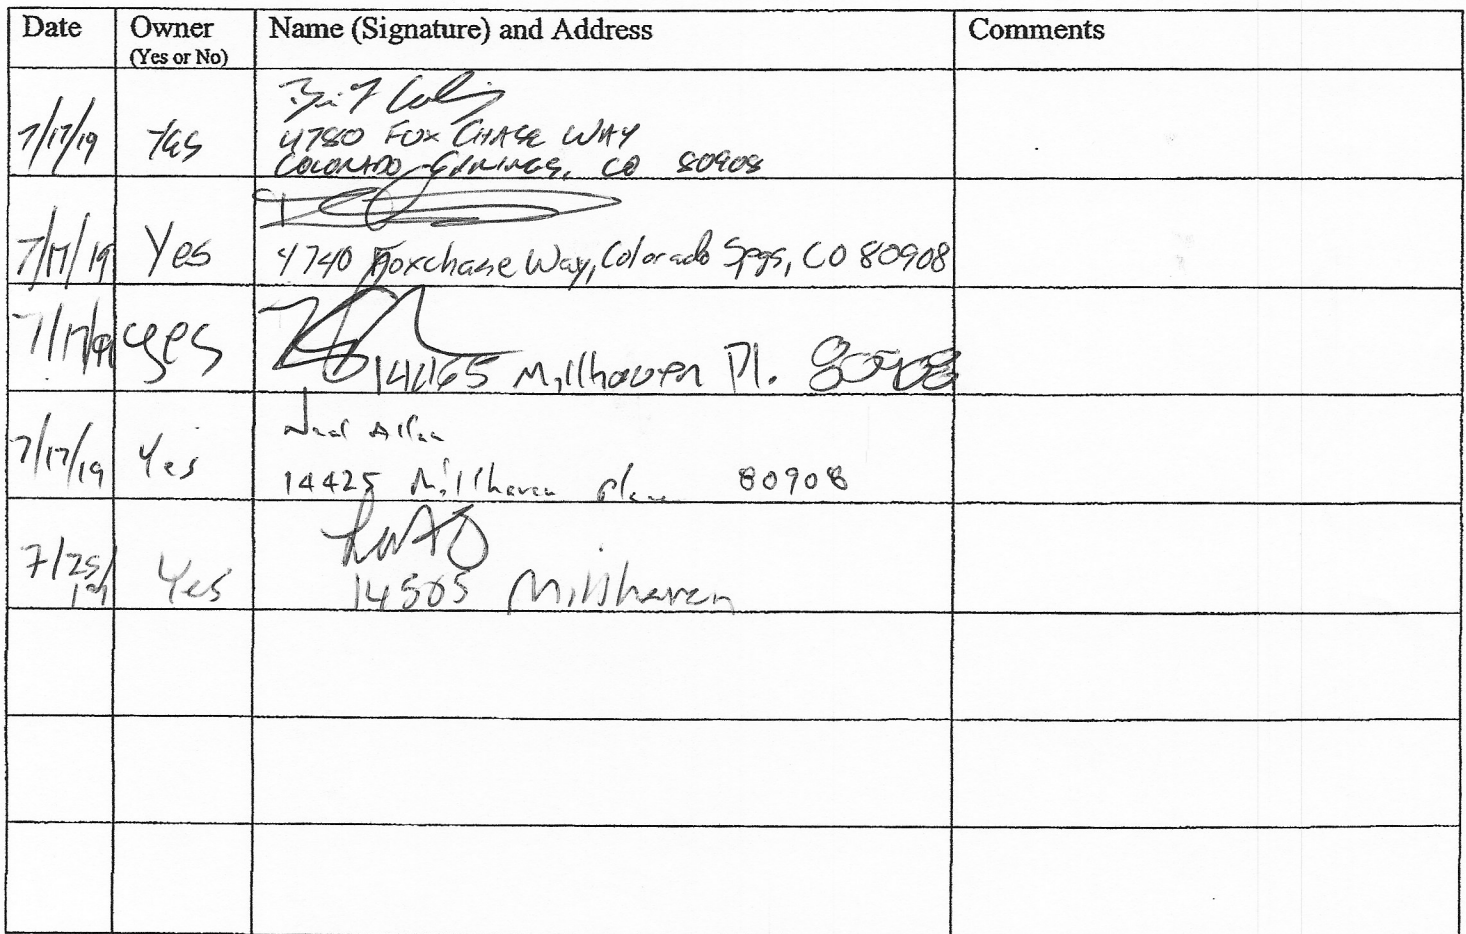 Date Owner Name (Signature) and Address Comments
(Yes or No)
7/17/19 Yes
4780 FOX CHASE WAY
COLORADO SPRINGS, CO 80908
7/17/19 Yes 4740 Foxchase Way, Colorado Spgs, CO 80908
7/17/19 yes Millhaven Pl. 80908
7/17/19 Yes Allen
14425 Millhaven Place 80908
7/25/19 Yes
14505 Millhaven